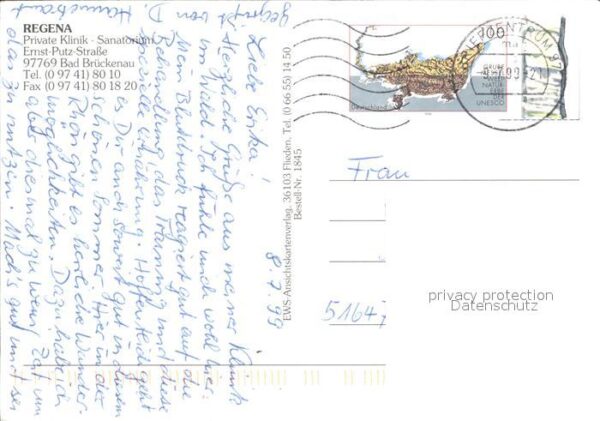 REGENA
Private Klinik · Sanatorium
Ernst-Putz-Straße
97769 Bad Brückenau
Tel. (0 97 41) 80 10
Fax (0 97 41) 80 18 20
8.7.99
Liebe Erika!
Herzliche Grüße aus meiner Klinik
im Wald. Ich fühle mich wohl hier.
Mein Blutdruck reagiert gut auf die
Behandlung das Training und diese
spezielle Ernährung. Hoffentlich geht
es Dir auch soweit gut in diesem
schönen Sommer. Hier in der
Rhön gibt es herrliche Wander-
möglichkeiten. Dazu habe ich
aber diesmal zu wenig Zeit um
das zu nutzen. Mach's gut und sei
gegrüßt von D.
EWS-Ansichtskartenverlag, 36103 Flieden, Tel. (0 66 55) 14 50
Bestell-Nr. 1845
100
Deutschland
GRUBE
MESSEL
NATUR-
ERBE
DER
UNESCO
BRIEFZENTRUM 97
Frau
51647
privacy protection
Datenschutz